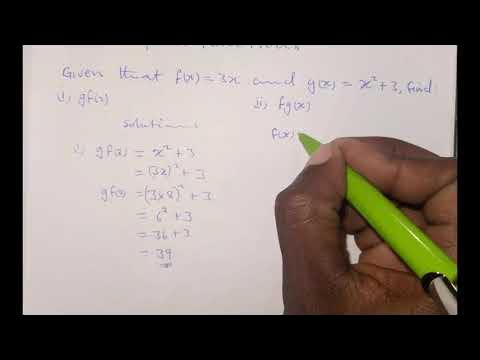 Given that f(x) = 3x and g(x) = x² + 3, find:
i) gf(2) ii) fg(x)
Solutions
i) gf(x) = x² + 3
= (3x)² + 3
gf(2) = (3×2)² + 3
= 6² + 3
= 36 + 3
= 39
f(x)